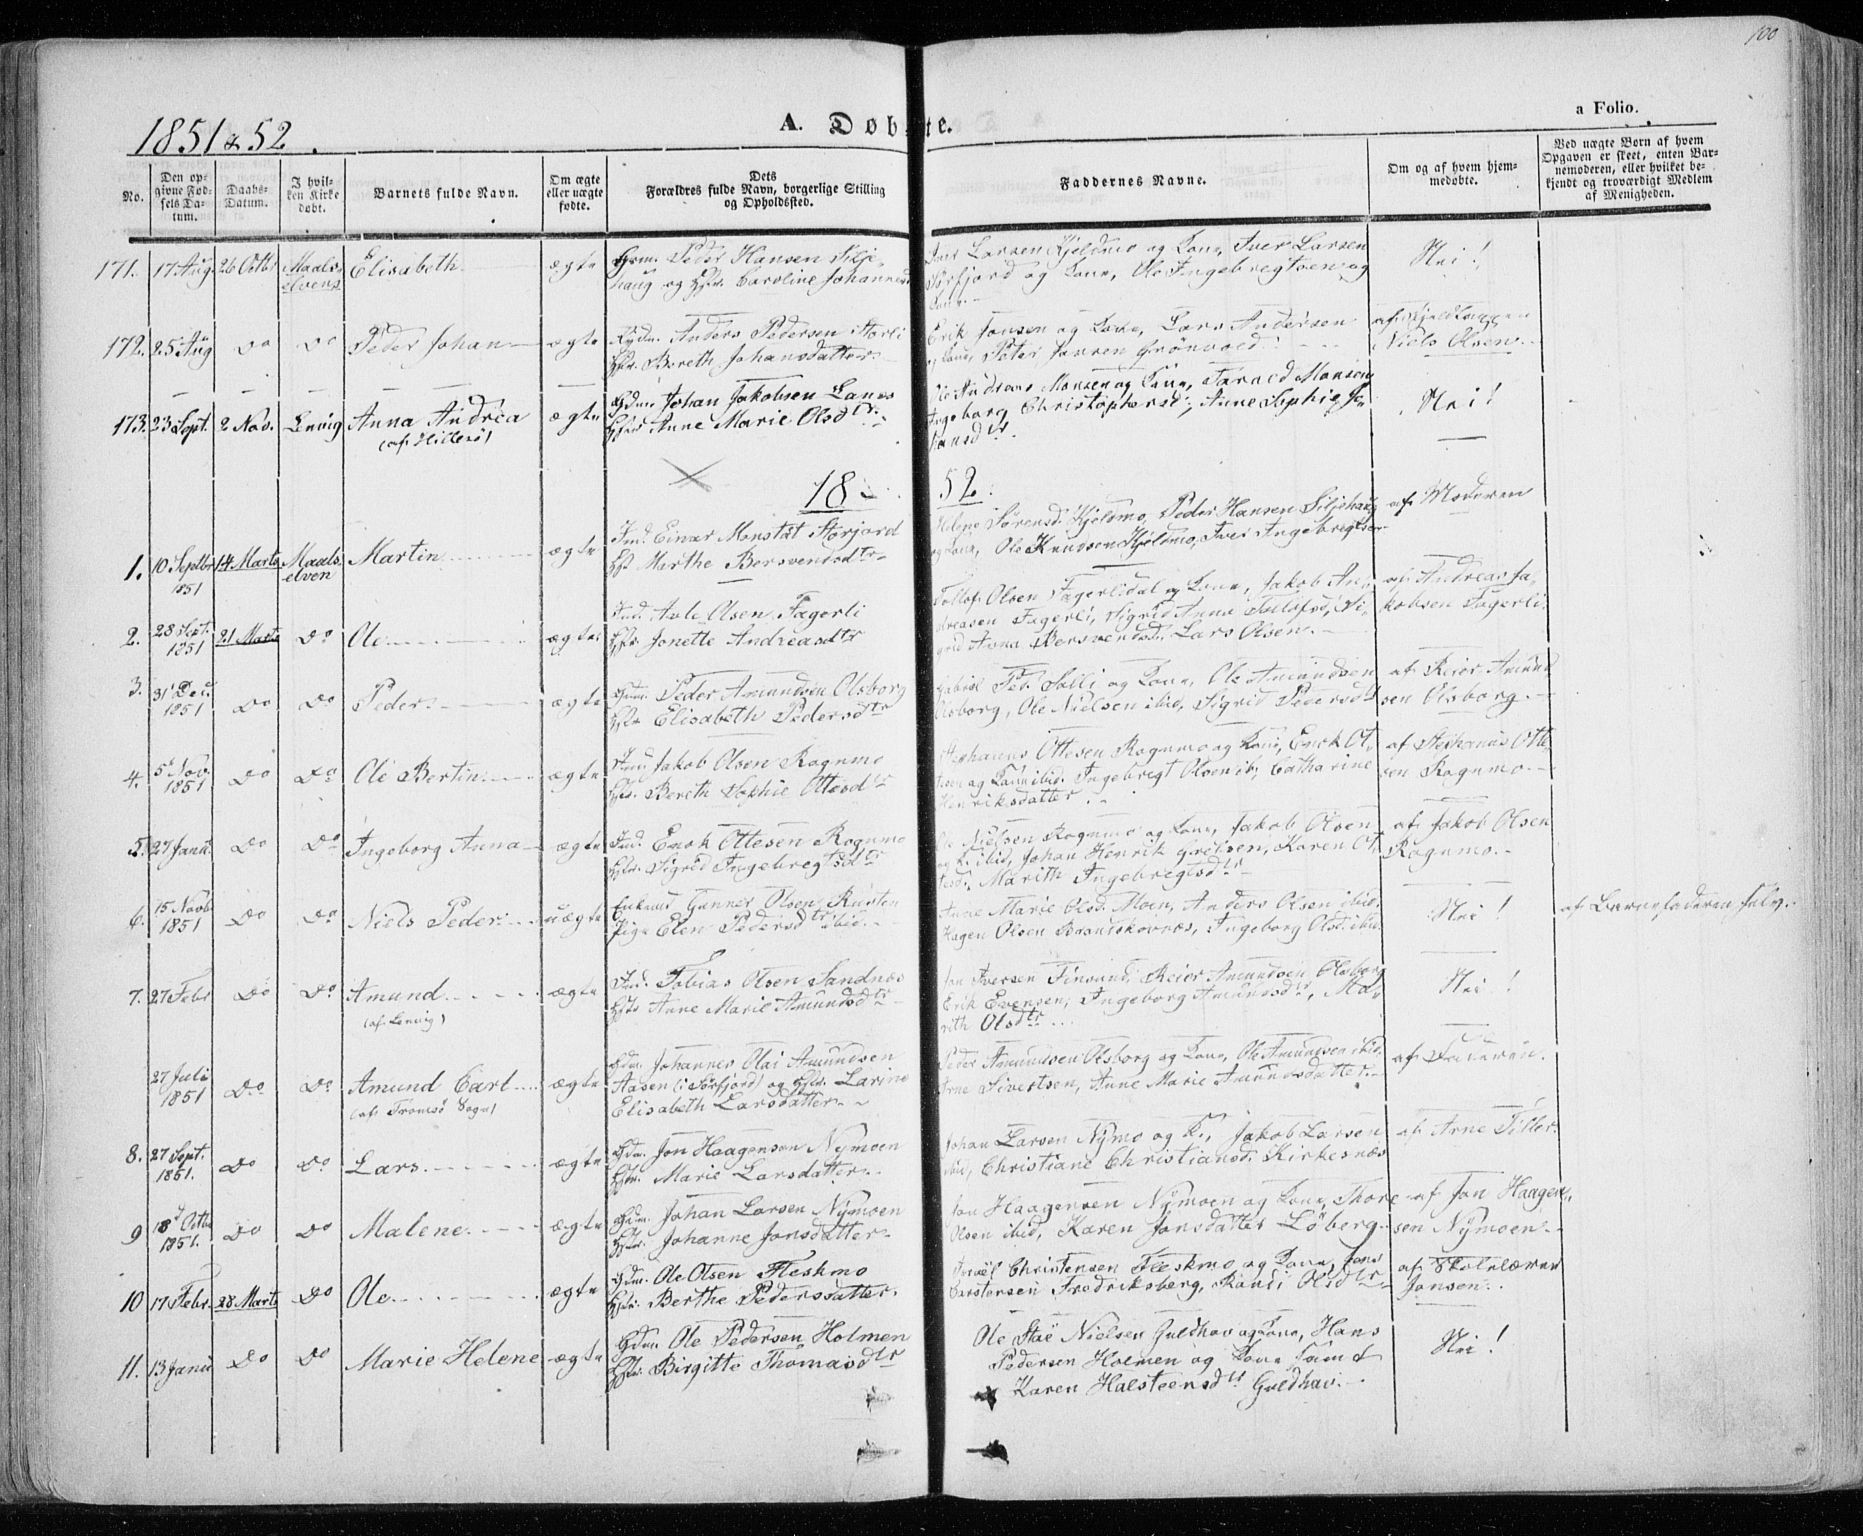 100
a Folio.
1851 & 52.
A. Døbte.
No.
Den op-
givne Fød-
sels Da-
tum.
Daabs-
Datum.
I hvil-
ken Kirke
døbt.
Barnets fulde Navn.
Om ægte
eller uægte
fødte.
Dets
Forældres fulde Navn, borgerlige Stilling
og Opholdssted.
Faddernes Navne.
Om og af hvem hjem-
medøbte.
Ved uægte Børn af hvem
Opgaven er skeet, enten Bar-
nemoderen, eller hvilket be-
kjendt og troværdigt Medlem
af Menigheden.
171. 17 Aug 26 Octbr Maals-
elvens Elisabeth ægte Peder Hansen Silje-
haug og Hstr. Caroline Johannesd
Iver Larsen Kjeldmo og Kone, Iver Larsen
Sørfjord og Kone, Ole Ingebregtsen og
Kone.
Nei!
172. 25 Aug Do Do Peder Johan ægte Anders Pedersen Storli
Hstr. Bereth Johansdatter
Erik Jonsen og Kone, Lars Andersen
og Kone, Peter Jonsen Grønvold
Niels Olsen
173. 23 Sept. 2 Nov. Lenvig Anna Andrea
(af Hillesø) ægte Gdm. Johan Jakobsen Lanes
Hstr. Anne Marie Olsdtr.
Ole Andreas Monsen og Kone, Tarald Monsen
Ingeborg Christophersd., Anne Sophie Jo-
hansdtr.
Nei!
1852.
1. 10 Septbr
1851 14 Marts Maals-
elven Martin ægte Ind. Einar Monstat Storjord
Hst. Marthe Bersvendsdtr
Helene Sørensd. Kjeldmo, Peder Hansen Siljehaug
og Kone, Ole Knudsen Kjeldmo, Iver Ingebregtsen
af Moderen
2. 28 Sept.
1851 21 Marts Do Ole ægte Ind. Avle Olsen Fagerli
Hstr. Jonette Andreasdtr
Tollof Olsen Fagerlidal og Kone, Jakob An-
dreasen Fagerli, Sigrid Anna Tollofsd., Si-
grid Anna Bersvendsd., Lars Olsen.
af Andreas Ja-
kobsen Fagerli.
3. 31 Dec.
1851 Do Do Peder ægte Peder Amundsen Olsborg
Hstr. Elisabeth Pedersdtr
Gabriel Ped. Solli og Kone, Ole Amundsen
Olsborg, Ole Nielsen ibid, Sigrid Pedersd
af Reier Amund-
sen Olsborg.
4. 5 Nov.
1851 Do Do Ole Bertin ægte Ind. Jakob Olsen Rognmo
Hstr. Bereth Sophie Ottesdtr
Stephanus Ottesen Rognmo og Kone, Enok Ot-
tesen og Kone ibid. Ingebregt Olsen ib., Catharine
Henriksdatter
af Stephanus Otte-
sen Rognmo.
5. 27 Janu. Do Do Ingeborg Anna ægte Ind. Enok Ottesen Rognmo
Hstr. Sigrid Ingebregtsdtr
Ole Nielsen Rognmo og Kone, Jakob Olsen
og K. ibid, Johan Henrik Gretisen, Karen Ot-
tesd., Marith Ingebregtsdtr
af Jakob Olsen
Rognmo.
6. 15 Novb
1851 Do Do Niels Peder uægte Enkemd Gunner Olsen
Pige Elen Pedersdtr ibid.
Anne Marie Olsd. Moen, Anders Olsen ibid.
Hagen Olsen Brandskovnæs, Ingeborg Olsd. ibid.
Nei!
af Barnefaderen selv.
7. 27 Febr Do Do Amund
(af Lenvig) ægte Ind. Tobias Olsen Sandnes
Hstr Anne Marie Amundsdtr
Jon Iversen Finsund, Reier Amundsen Olsborg
Erik Evensen, Ingeborg Amundsdtr, Ma-
rith Olsdtr
Nei!
27 Juli
1851 Do Do Amund Carl
(af Tromsø Sogn) ægte Gdm. Johannes Olai Amundsen
Aasen (i Sørfjord) og Hstr. Larine
Elisabeth Larsdatter
Peder Amundsen Olsborg og Kone, Ole Amundsen ibid,
Arne Sivertsen, Anne Marie Amundsdatter
af Faderen.
8. 27 Sept.
1851. Do Do Lars ægte Gdm. Jon Haagensen Nymoen
Hstr. Marie Larsdatter
Johan Larsen Nymo og K., Jakob Larsen
ibid, Christiane Christiansd. Kirkesnæs
af Arne Tiller.
9 18 Octbr
1851. Do Do Malene ægte Gdm. Johan Larsen Nymoen
Hstr. Johanne Jonsdatter
Jon Haagensen Nymoen og Kone, Thore
Olsen ibid, Karen Jonsdatter Løberg
af Jon Haagen-
sen Nymoen
10 17 Febr. 28 Marts Do Ole ægte Gdm. Ole Olsen Fleskmo
Hstr. Berthe Pedersdatter.
Israël Christensen Fleskmo og Kone, Jens
Carstensen Fredriksberg, Randi Olsdtr
af Skolelærer
Jensen.
11. 13 Janu Do Do Marie Helene ægte Gdm. Ole Pedersen Holmen
Hstr. Birgitte Thomasdtr
Ole Nielsen Guldhav og Kone, Hans
Pedersen Holmen og Kone samt
Karen Halsteensdtr Guldhav.
Nei!